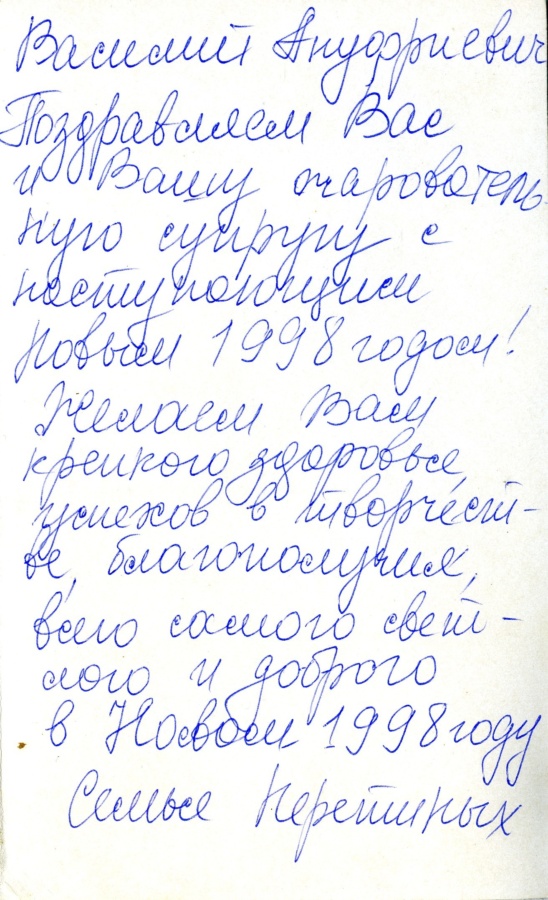 Василий Ануфриевич
Поздравляем Вас
и Вашу очарователь-
ную супругу с
наступающим
Новым 1998 годом!
Желаем Вам
крепкого здоровья,
успехов в творчест-
ве, благополучия,
всего самого свет-
лого и доброго
в Новом 1998 году
Семья